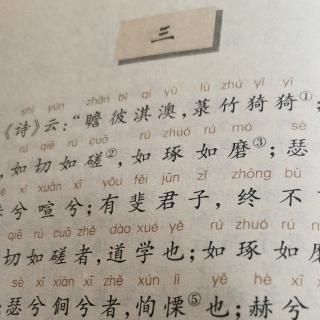 三
shī yún zhān bǐ qí yù lù zhú yī yī
《诗》云：“瞻彼淇澳，菉竹猗猗①；
rú qiē rú cuō rú zhuó rú mó sè
，如切如磋②，如琢如磨③；瑟
xī xuān xī yǒu fěi jūn zǐ zhōng bù
兮喧兮；有斐君子，终不
qiē rú cuō zhě dào xué yě rú zhuó rú
切如磋者，道学也；如琢如
sè xī xiàn xī zhě xún lì yě hè xī
瑟兮僩兮者，恂慄⑤也；赫兮